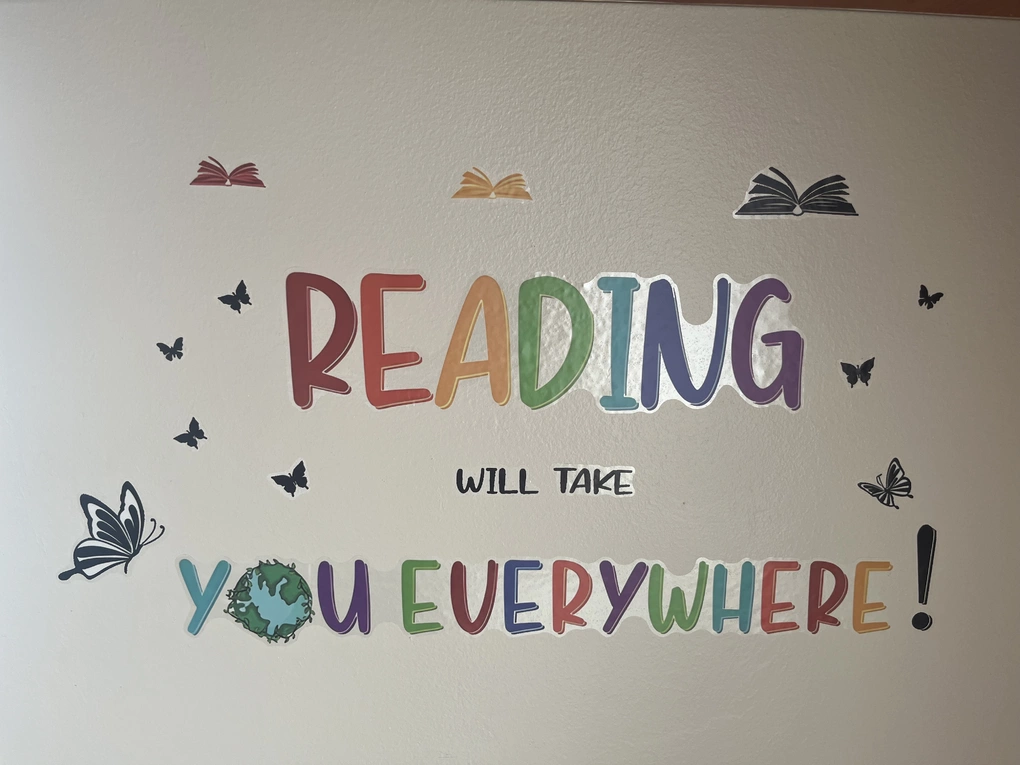 READING
WILL TAKE
YOU EVERYWHERE!